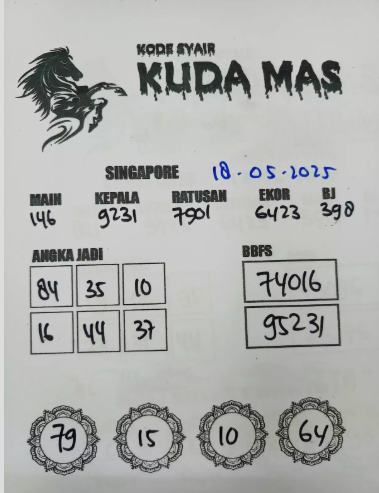 KODE SYAIR
KUDA MAS
SINGAPORE 18-05-2025
MAIN KEPALA RATUSAN EKOR BJ
146 9231 7901 6423 398
ANGKA JADI BBFS
84 35 10 74016
16 44 37 95231
79 15 10 64